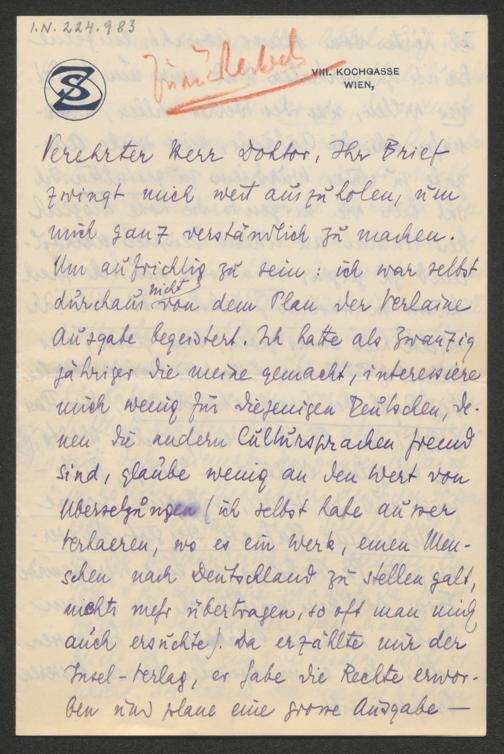 I.N. 224.983
SZ
VIII. KOCHGASSE
WIEN,
Verehrter Herr Doktor, Ihr Brief
zwingt mich weit auszuholen, um
mich ganz verständlich zu machen.
Um aufrichtig zu sein: ich war selbst
durchaus nicht von dem Plan der Verlaine
Ausgabe begeistert. Ich hatte als zwanzig
jähriger die meine gemacht, interessiere
mich wenig für diejenigen Deutschen, de-
nen die andern Cultursprachen fremd
sind, glaube wenig an den Wert von
Übersetzungen (ich selbst habe ausser
Verhaeren, wo es ein Werk, einen Men-
schen nach Deutschland zu stellen galt,
nichts mehr übertragen, so oft man mich
auch ersuchte). Da erzählte mir der
Insel-Verlag, er habe die Rechte erwor-
ben und plane eine grosse Ausgabe —